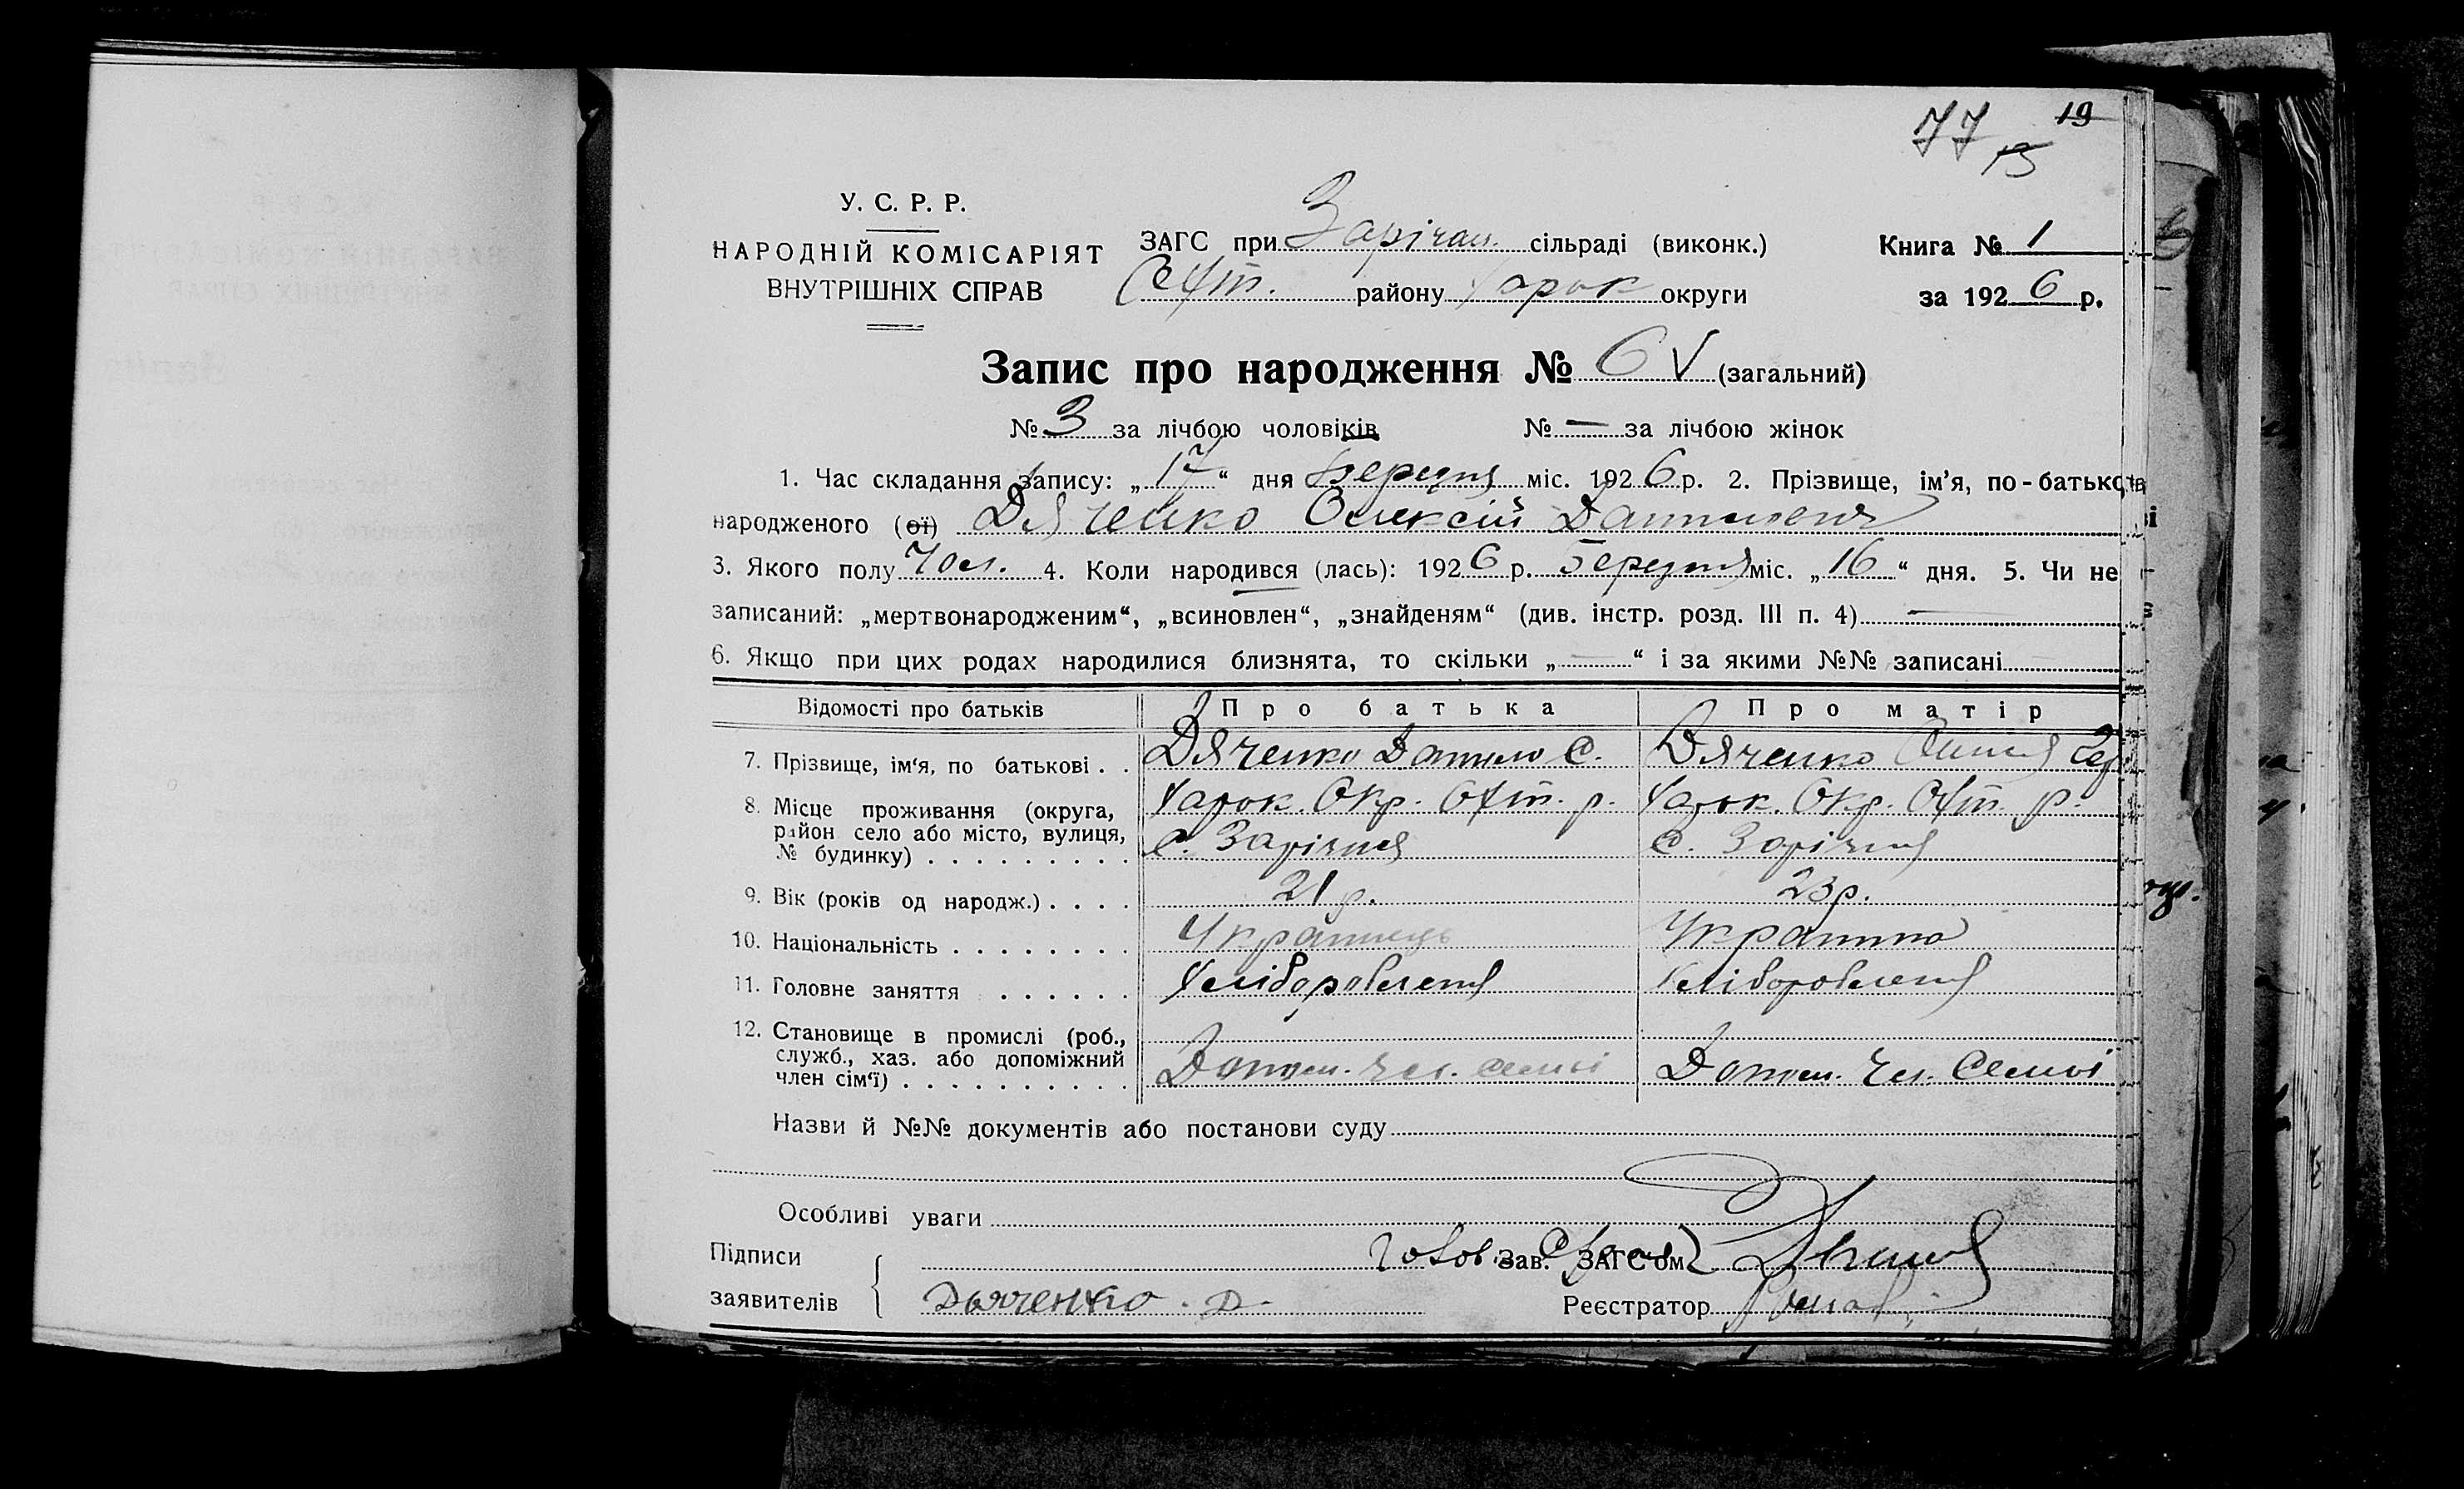 77 19
13
У. С. Р. Р.
НАРОДНІЙ КОМІСАРІЯТ
ВНУТРІШНІХ СПРАВ
ЗАГС при Зарічан. сільраді (виконк.)
Охт. району Харьк округи
Книга № 1
за 1926 р.
Запис про народження № 6 V (загальний)
№ 3 за лічбою чоловіків № — за лічбою жінок
1. Час складання запису: „17“ дня Березня міс. 1926 р. 2. Прізвище, ім'я, по-батькові
народженого (ої) Дяченко Олексій Данилович
3. Якого полу Чол. 4. Коли народився (лась): 1926 р. Березня міс. „16“ дня. 5. Чи не
записаний: „мертвонародженим“, „всиновлен“, „знайденям“ (див. інстр. розд. III п. 4) —
6. Якщо при цих родах народилися близнята, то скільки „—“ і за якими №№ записані
Відомості про батьків Про батька Про матір
7. Прізвище, ім'я, по батькові . . Дяченко Данило С. Дяченко
8. Місце проживання (округа, Харьк. Окр. Охт. р. Харьк. Окр. Охт. р.
район село або місто, вулиця, с. Зарічня с. Зарічня
№ будинку) . . . . . . . . .
9. Вік (років од народж.) . . . . 21 р. 23 р.
10. Національність . . . . . . . . Українець Українка
11. Головне заняття . . . . . . Хліборобство Хліборобство
12. Становище в промислі (роб.,
служб., хаз. або допоміжний Допом. чл. семьі Допом. чл. Семьі
член сім'ї) . . . . . . . . . .
Назви й №№ документів або постанови суду
Особливі уваги
Підписи Голов. Зав. ЗАГС'ом
заявителів Дьяченко. Д. Реєстратор